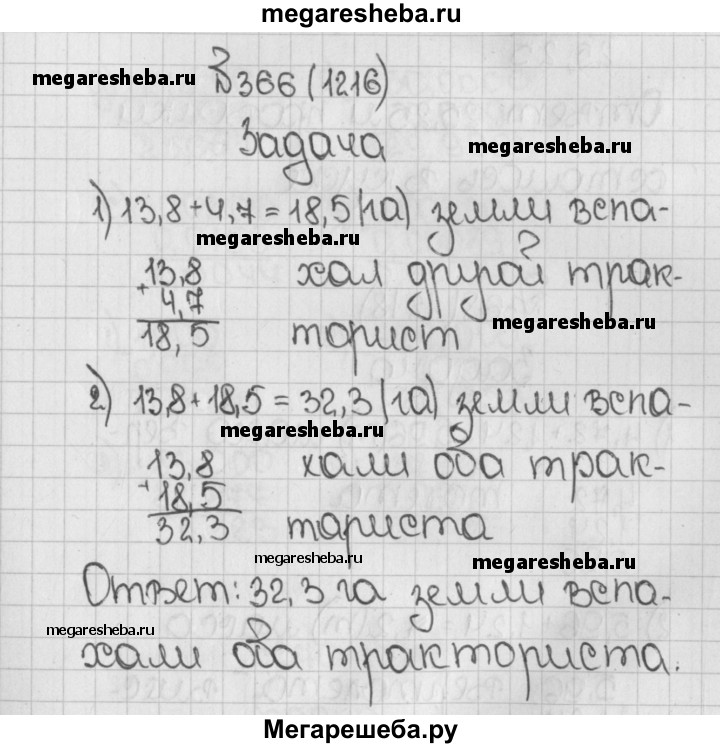 megaresheba.ru
№366 (1216)
megaresheba.ru
Задача
megaresheba.ru
1) 13,8+4,7=18,5(га) земли вспа-
megaresheba.ru
13,8 хал другой трак-
+
4,7
megaresheba.ru
18,5 торист
2) 13,8+18,5=32,3(га) земли вспа-
megaresheba.ru
13,8 хали оба трак-
+
18,5
32,3 тариста
megaresheba.ru
megaresheba.ru
Ответ: 32,3 га земли вспа-
megaresheba.ru
хали оба тракториста.
Мегарешеба.ру